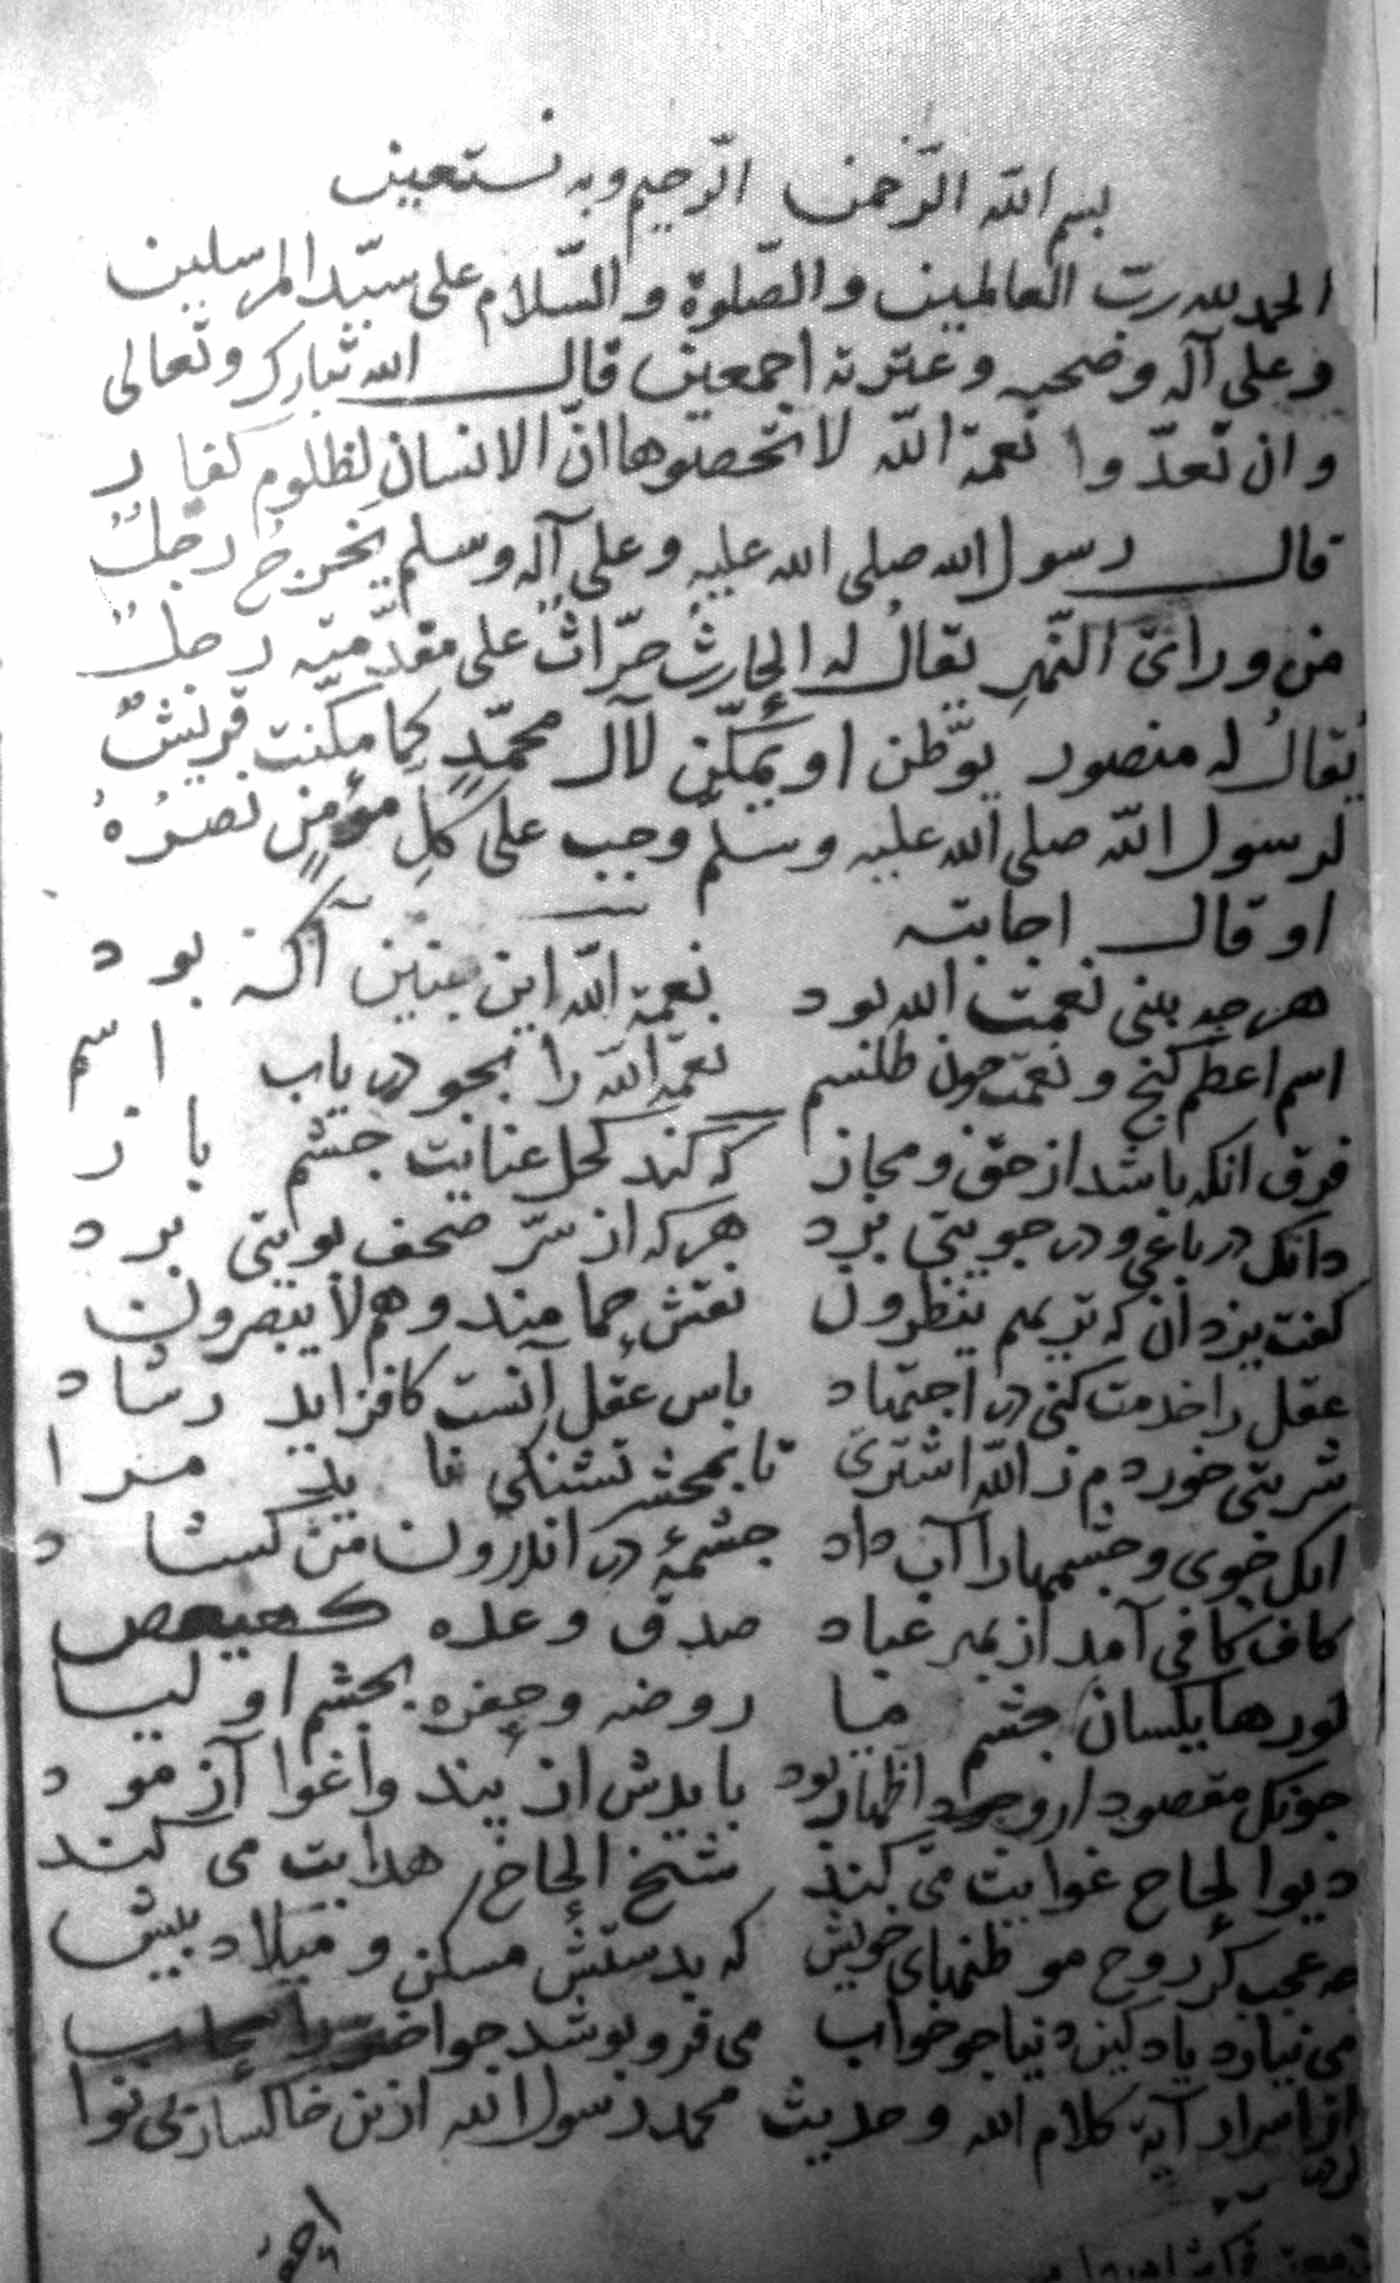 بسم الله الرّحمن الرّحيم وبه نستعين
الحمد لله ربّ العالمين والصّلوة والسّلام على سيّد المرسلين
وعلى آله وصحبه وعترته اجمعين قال الله تبارك وتعالى
وان تعدّوا نعمة اللّه لا تحصوها انّ الانسان لظلوم كفار
قال رسول الله صلى الله عليه وعلى آله وسلم يخرج رجلٌ
من ورائ النّهر يقال له الحارث حرّاث على مقدّمته رجل
يقالُ له منصور يوّطن او يمكّن لآل محمّدٍ كما مكّنت قريشٌ
لرسول اللّه صلى الله عليه وسلّم وجب على كلِ مؤمنٍ نصرُهُ
او قال اجابته
هرچه بينى نعمت الله بود نعمة اللّه اين چنين آگه بود
اسم اعظم كنج و نعمت چون طلسم نعمة اللّه را بجو درياب اسم
فرق انكه باشد از حق و مجاز كه كند كحل عنايت چشم باز
دانكه در باغى و در جويى برد هركه از سرّ صحف بويى برد
كفت يزدان كه تريهم ينظرون نقش حمامند وهم لا يبصرون
عقل را خدمت كنى در اجتهاد پاس عقل آنست كافزايد رشاد
شربتى خوردم ز اللّه اشترى تا بمحشر تشنكى نايد مرا
انكه جوى و چشمها را آب داد چشمۀ در اندرون من كشاد
كاف كافى آمد از بهر عباد صدق وعده كهيعص
كورها يكسان بچشم ما روضه و حفره بچشم اوليا
چونكه مقصود از وجود اظهار بود بايدش از پند و اغوا آزمود
ديو الحاح غوايت مى كند شيخ الحاح هدايت مى كند
چه عجب كر روح موطنهاى خويش كه بدستش مسكن و ميلاد پيش
مى نيارد ياد كين دنيا چو خواب مى فرو پوشد چو اختر را سحاب
اسرار آية كلام الله و حديث محمد رسول الله ازين خاكسار بى نوا